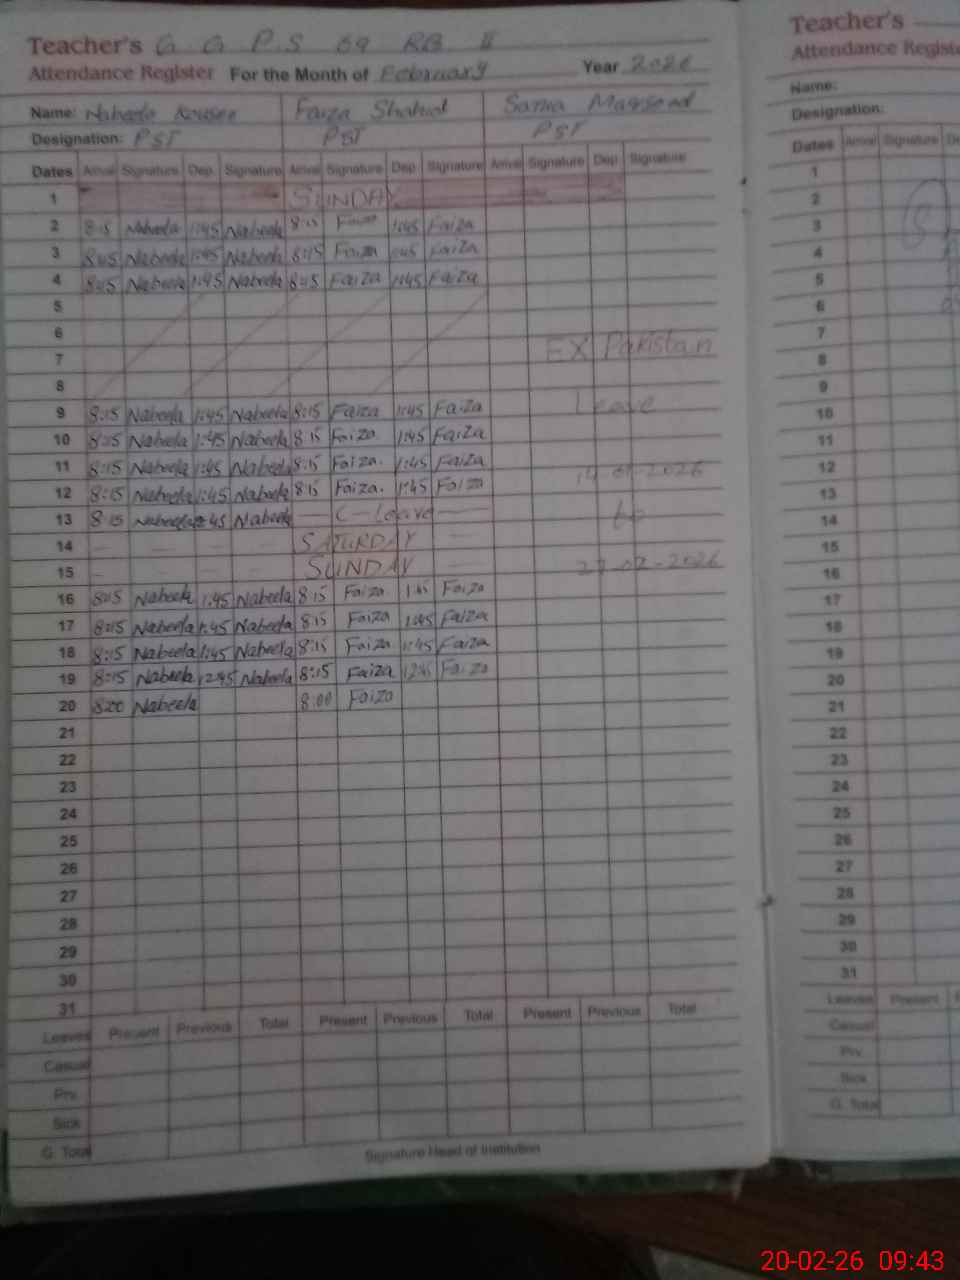 Teacher's G G P S 69 RB II
Attendance Register For the Month of February Year 2026
Name: Nabeela Kousar Faiza Shahid Samia Maqsood
Designation: PST PST PST
Dates Arrival Signature Dep. Signature Arrival Signature Dep. Signature Arrival Signature Dep. Signature
1 SUNDAY
2 8:15 Nabeela 1:45 Nabeela 8:15 Faiza 1:45 Faiza
3 8:15 Nabeela 1:45 Nabeela 8:15 Faiza 1:45 Faiza
4 8:15 Nabeela 1:45 Nabeela 8:15 Faiza 1:45 Faiza
5
6
7 EX Pakistan
8
9 8:15 Nabeela 1:45 Nabeela 8:15 Faiza 1:45 Faiza Leave
10 8:15 Nabeela 1:45 Nabeela 8:15 Faiza 1:45 Faiza
11 8:15 Nabeela 1:45 Nabeela 8:15 Faiza. 1:45 Faiza
12 8:15 Nabeela 1:45 Nabeela 8:15 Faiza. 1:45 Faiza 2026
13 8:15 Nabeela 45 Nabeela C-Leave to
14 SATURDAY
15 SUNDAY 02-2026
16 8:15 Nabeela 1:45 Nabeela 8:15 Faiza. 1:45 Faiza
17 8:15 Nabeela 1:45 Nabeela 8:15 Faiza 1:45 Faiza
18 8:15 Nabeela 1:45 Nabeela 8:15 Faiza 1:45 Faiza
19 8:15 Nabeela 12:45 Nabeela 8:15 Faiza 12:45 Faiza
20 8:00 Nabeela 8:00 Faiza
21
22
23
24
25
26
27
28
29
30
31
Leaves Present Previous Total Present Previous Total Present Previous Total
Casual
Prv.
Sick
G. Total
Signature Head of Institution
Teacher's
Attendance
Name:
Designation:
Dates Arrival Signature
1
2
3
4
5
6
7
8
9
10
11
12
13
14
15
16
17
18
19
20
21
22
23
24
25
26
27
28
29
30
31
Leaves Present
Casual
Prv.
Sick
G. Total
20-02-26 09:43